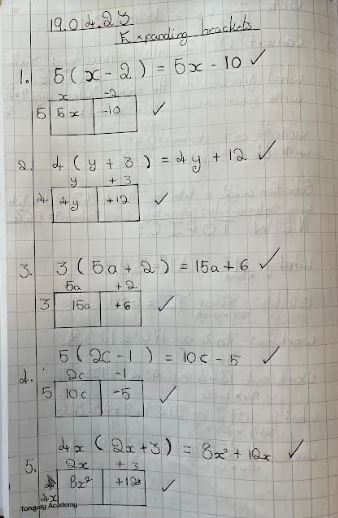 19.04.23
Expanding brackets
1. 5(x - 2) = 5x - 10 ✓
x -2
5 5x -10 ✓
2. 4(y + 3) = 4y + 12 ✓
y +3
4 4y +12 ✓
3. 3(5a + 2) = 15a + 6 ✓
5a +2
3 15a +6 ✓
4. 5(2c - 1) = 10c - 5 ✓
2c -1
5 10c -5 ✓
5. 4x(2x + 3) = 8x² + 12x ✓
2x +3
4x 8x² +12x ✓
Torquay Academy